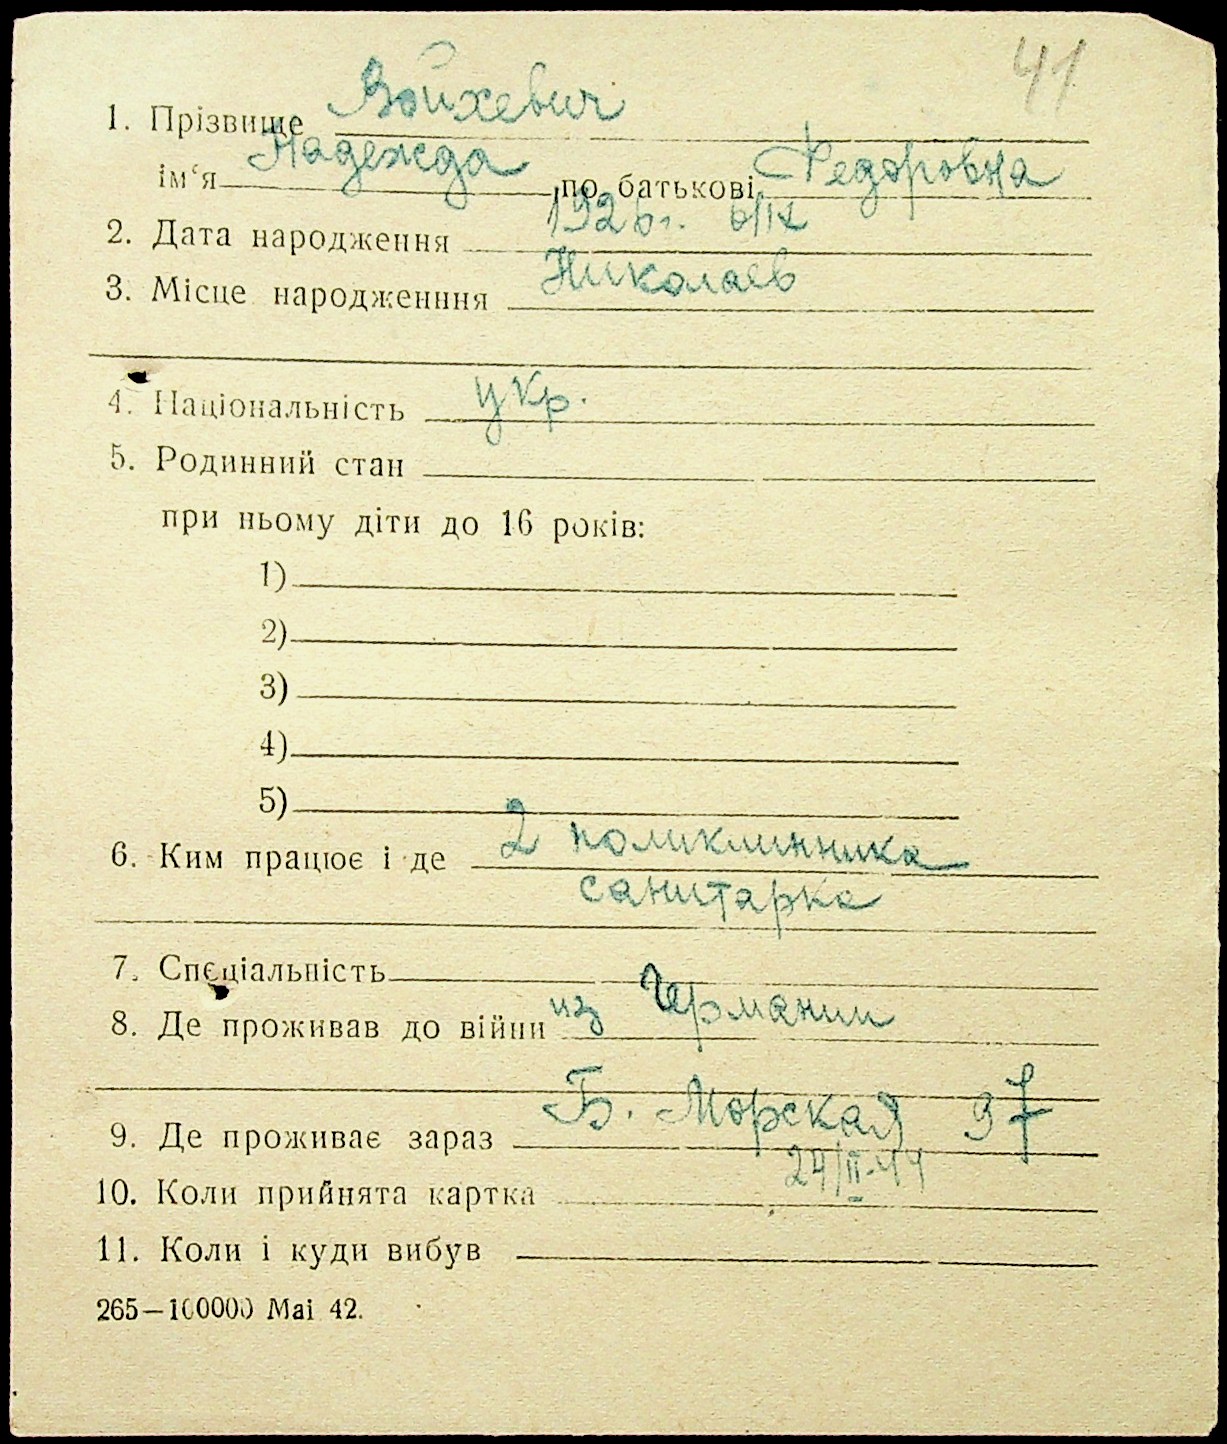 41
1. Прізвище Войхевич
ім‘я Надежда по батькові Федоровна
2. Дата народження 1926г. 6/IX
3. Місце народженння Николаев
4. Національність укр.
5. Родинний стан
при ньому діти до 16 років:
1)
2)
3)
4)
5)
6. Ким працює і де 2 поликлинника
санитарка
7. Спеціальність
8. Де проживав до війни из Германии
9. Де проживає зараз Б. Морская 97
10. Коли прийнята картка 24/II-44
11. Коли і куди вибув
265—100000 Mai 42.